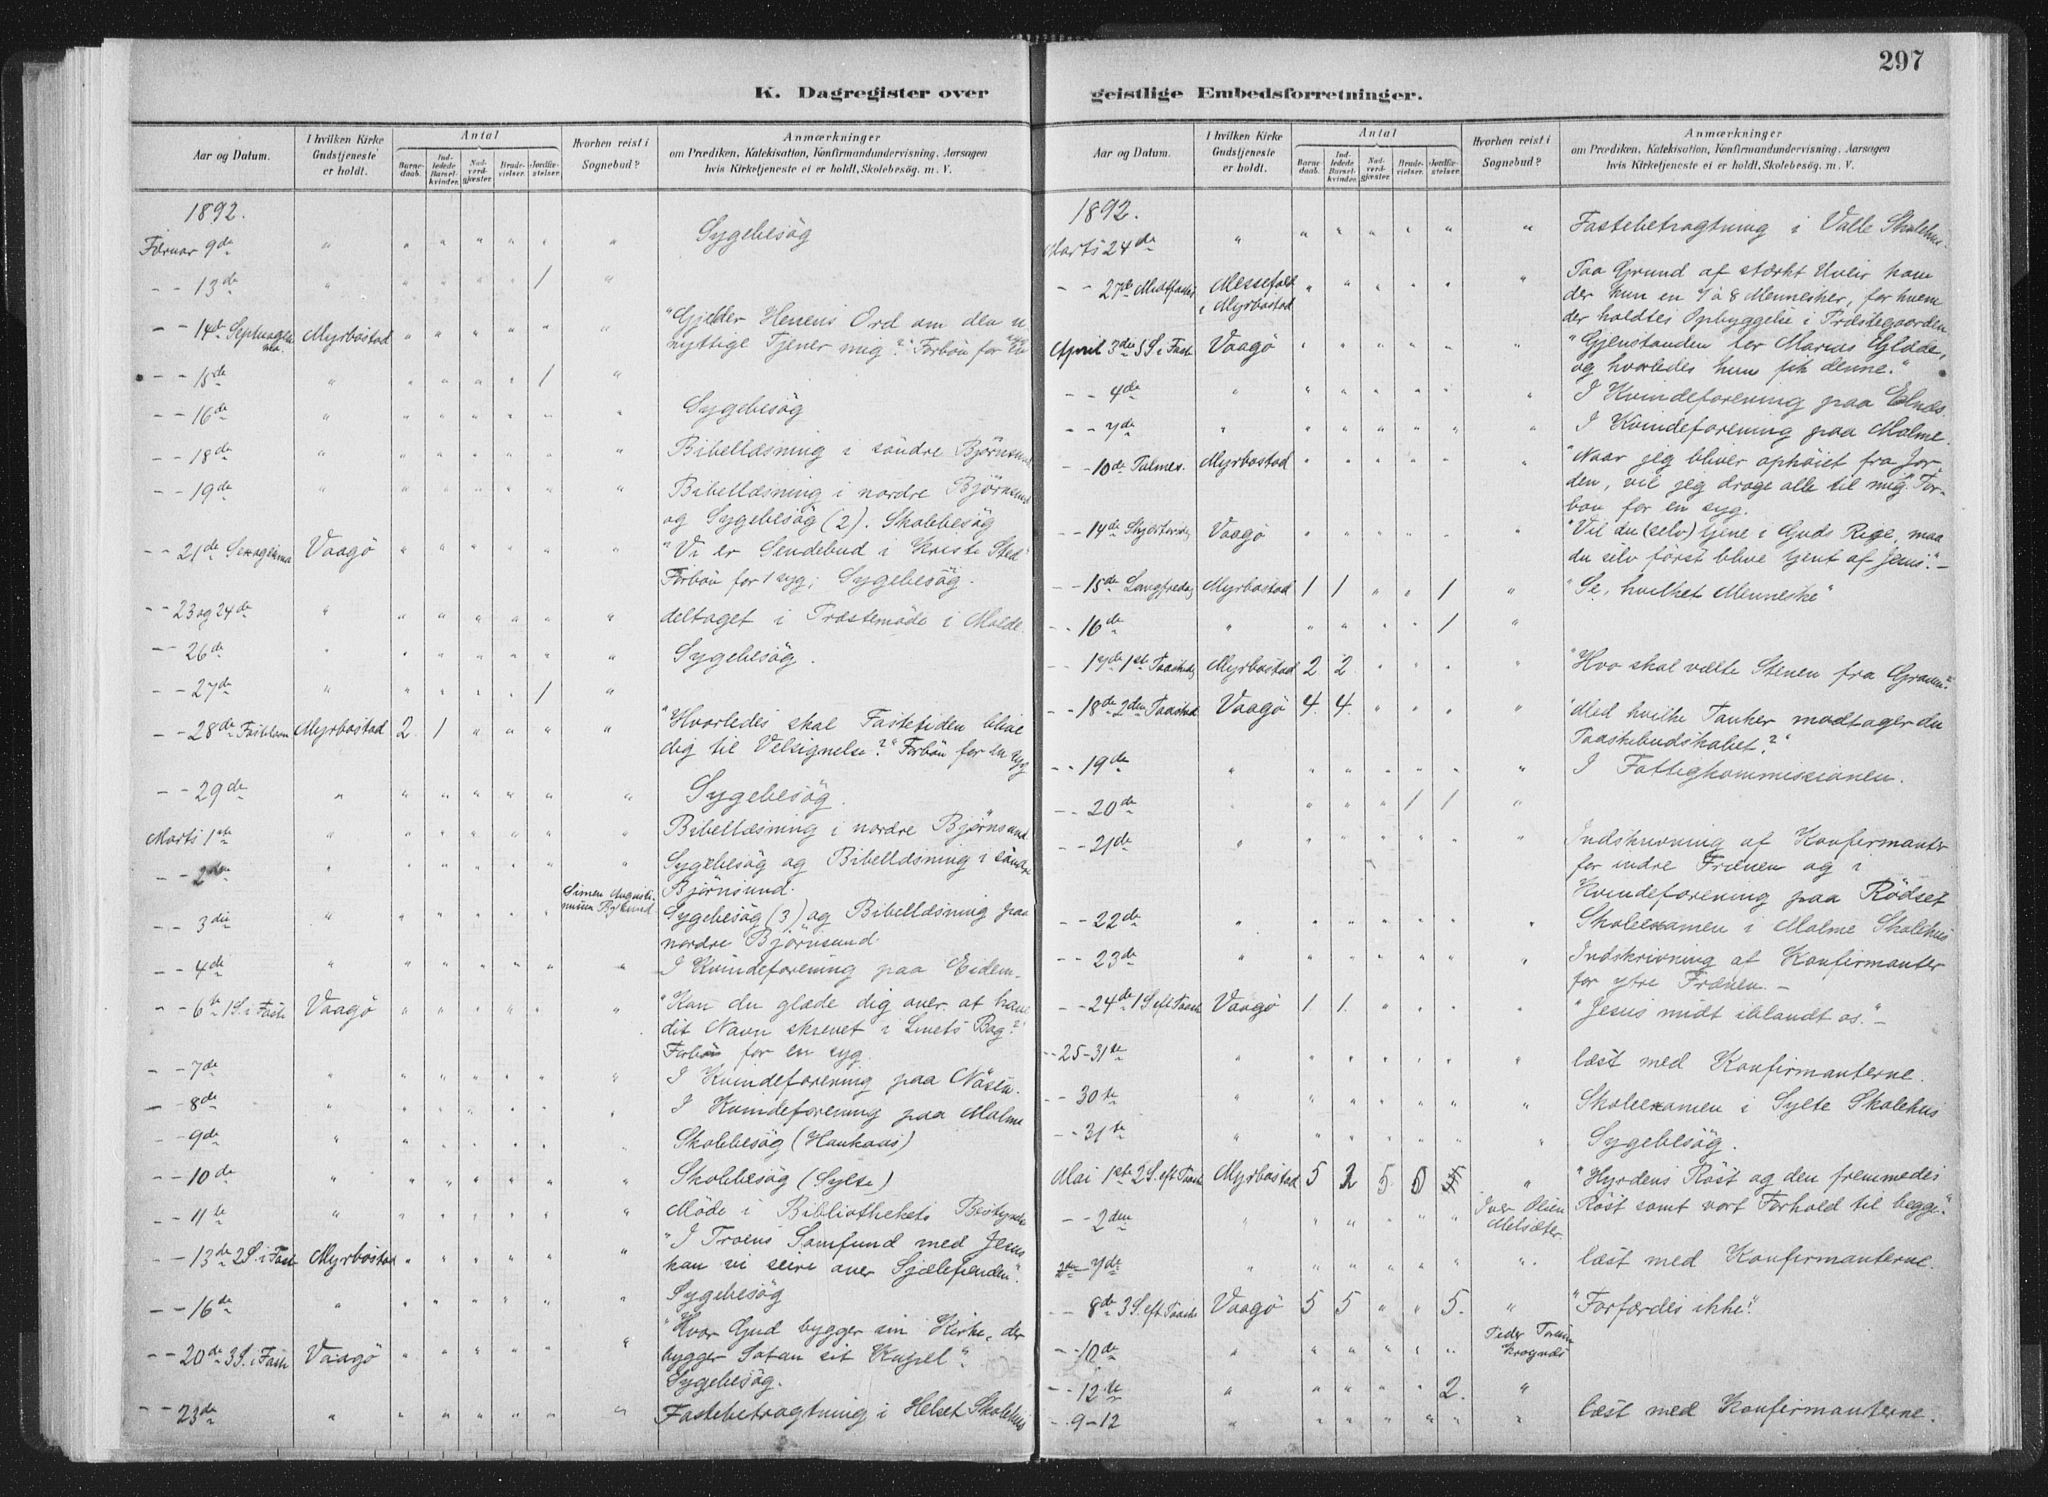 297
K. Dagregister over geistlige Embedsforretninger.
Aar og Datum.
I hvilken Kirke Gudstjeneste er holdt.
Antal
Barnedaab.
Indledede Barselkvinder.
Nadverdgjæster.
Brudevielser.
Jordfæstelser.
Hvorhen reist i Sognebud?
Anmærkninger
om Prædiken, Katekisation, Konfirmandundervisning. Aarsagen
hvis Kirketjeneste ei er holdt, Skolebesøg. m. V.
1892.
Februar 9de " " " " " " " Sygebesög
- - 13de " " " " " 1 "
- - 14de Septuagesima Myrbostad " " " " " " "Gjelder Herrens Ord om den u
nyttige Tjener mig?" Forbön for en syg
- - 15de " " " " " 1 "
- - 16de " " " " " " " Sygebesög
- - 18de " " " " " " " Bibellæsning i söndre Björnsund
- - 19de " " " " " " " Bibellæsning i nordre Björnsund
og Sygebesög (2). Skolebesög
- - 21de Sexagesima Vaagö " " " " " " "Vi er Sendebud i Kristi Sted"
Forbön for 1 syg; Sygebesög.
- - 23 og 24de " " " " " " " deltaget i Præstemöde i Molde.
- - 26de " " " " " " " Sygebesög.
- - 27de " " " " " 1 "
- - 28de Fastelavn Myrbostad 2 1 " " " " "Hvorledes skal Fastetiden blive
dig til Velsignelse?" Forbön for en syg
- - 29de " " " " " " " Sygebesög.
Marts 1ste " " " " " " " Bibellæsning i nordre Björnsund
- - 2den " " " " " " " Sygebesög og Bibellæsning i söndre
Björnsund.
- - 3die " " " " " " Simen Augusti- Sygebesög (3) og Bibellæsning paa
nordre Björnsund
- - 4de " " " " " " " I Kvindeforening paa Eidem.
- - 6te 1 S. i Faste Vaagö " " " " " " "Kan du glæde dig over at have
dit Navn skrevet i Livets Bog?"
Forbön for en syg.
- - 7de " " " " " " " I Kvindeforening paa Nösen.
- - 8de " " " " " " " I Kvindeforening paa Malme
- - 9de " " " " " " " Skolebesög (Haukaas)
- - 10de " " " " " " " Skolebesög (Sylte)
- - 11te " " " " " " " Möde i Bibliothekets Bestyrelse
- - 13de 2 S. i Faste Myrbostad " " " " " " "I Troens Samfund med Jesus
kan vi seire over Sjælefienden".
- - 16de " " " " " " " Sygebesög
- - 20de 3 S. i Faste Vaagö " " " " " " "Hvor Gud bygger sin Kirke, der
bygger Satan sit Kapel".
Sygebesög.
- - 23de " " " " " " " Fastebetragtning i Helset Skolehus
Aar og Datum.
I hvilken Kirke Gudstjeneste er holdt.
Antal
Barnedaab.
Indledede Barselkvinder.
Nadverdgjæster.
Brudevielser.
Jordfæstelser.
Hvorhen reist i Sognebud?
Anmærkninger
om Prædiken, Katekisation, Konfirmandundervisning. Aarsagen
hvis Kirketjeneste ei er holdt, Skolebesøg. m. V.
1892.
Marts 24de " " " " " " " Fastebetragtning i Valle Skolehus.
- - 27de Midtfaste Messefald i Myrbostad " " " " " " Paa Grund af stærkt Uveir kom
der kun en 7 à 8 Mennesker, for hvem
der holdtes Opbyggelse i Præstegaarden
April 3die 5 S. i Faste Vaagö " " " " " " "Gjenstanden for Marias Glæde,
og hvorledes hun fik denne."
- - 4de " " " " " " " I Kvindeforening paa Elnæs.
- - 7de " " " " " " " I Kvindeforening paa Malme.
- - 10de Palmes. Myrbostad " " " " " " "Naar jeg bliver ophöiet fra Jor-
den, vil jeg drage alle til mig". For-
bön for en syg.
- - 14de Skjærtorsdag Vaagö " " " " " " "Vil du (selv) tjene i Guds Rige, maa
du selv först blive tjent af Jesus".-
- - 15de Langfredag Myrbostad 1 1 " " 1 " "Se, hvilket Menneske"
- - 16de " " " " " 1 "
- - 17de 1ste Paaskedag Myrbostad 2 2 " " " " "Hvo skal vælte Stenen fra Graven?"
- - 18de 2den Paaskedag Vaagö 4. 4. " " " " "Med hvilke Tanker modtager du
Paaskebudskabet?"
- - 19de " " " " " " " I Fattigkommissionen.
- - 20de " " " " 1 1 "
- - 21de " " " " " " " Indskrivning af Konfirmanter
for indre Frænen og i
Kvindeforening paa Rödset
- - 22de " " " " " " " Skoleexamen i Malme Skolehus
- - 23de " " " " " " " Indskrivning af Konfirmanter
for ytre Frænen.-
- - 24de 1 S. eft Paaske Vaagö 1 1. " " " " "Jesus midt iblandt os."-
- - 25-31te " " " " " " " læst med Konfirmanterne.
- - 30te " " " " " " " Skoleexamen i Sylte Skolehus
- - 31te " " " " " " " Sygebesög.
Mai 1ste 2 S. eft Paaske Myrbostad 5 2 5 " "Hyrdens Röst og den fremmedes
Röst samt vort Forhold til begge".
- - 2den " " " " " " Iver Olsen Melsæter.
- - 7de " " " " " " " læst med Konfirmanterne.
- - 8de 3 S. eft Paaske Vaagö 5 5 " " 5. " "Forfærdes ikke!"
- - 10de " " " " " " Peder
- - 12te " " " " " 2. "
- - 9-12 " " " " " " " læst med Konfirmanterne.